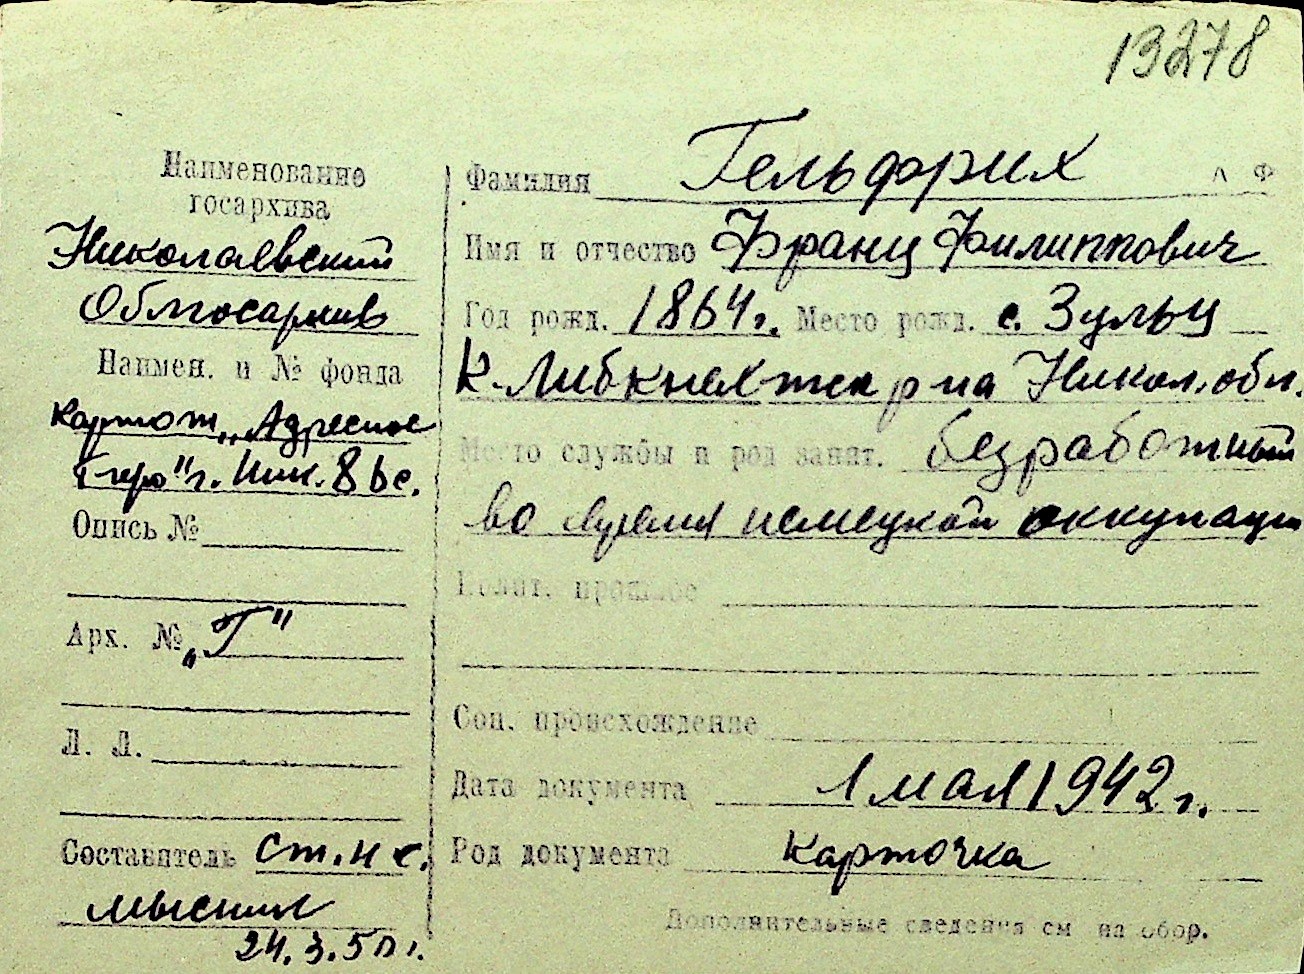 13278
Наименование
госархива
Николаевский
Облгосархив
Наимен. и № фонда
картот. „Адресное
бюро" г. Ник.
Опись №
Арх. № „Г"
Л. Л.
Составитель ст. н с.
24.3.50 г.
Фамилия Гельфрих Л Ф
Имя и отчество Франц Филиппович
Год рожд. 1864 г. Место рожд. с. Зульц
К.-Либкнехтка р-на Никол. обл.
Место службы и род занят. безработный
во время немецкой оккупации
Полит. прошлое
Соц. происхождение
Дата документа 1 мая 1942 г.
Род документа карточка
Дополнительные сведения см на обор.